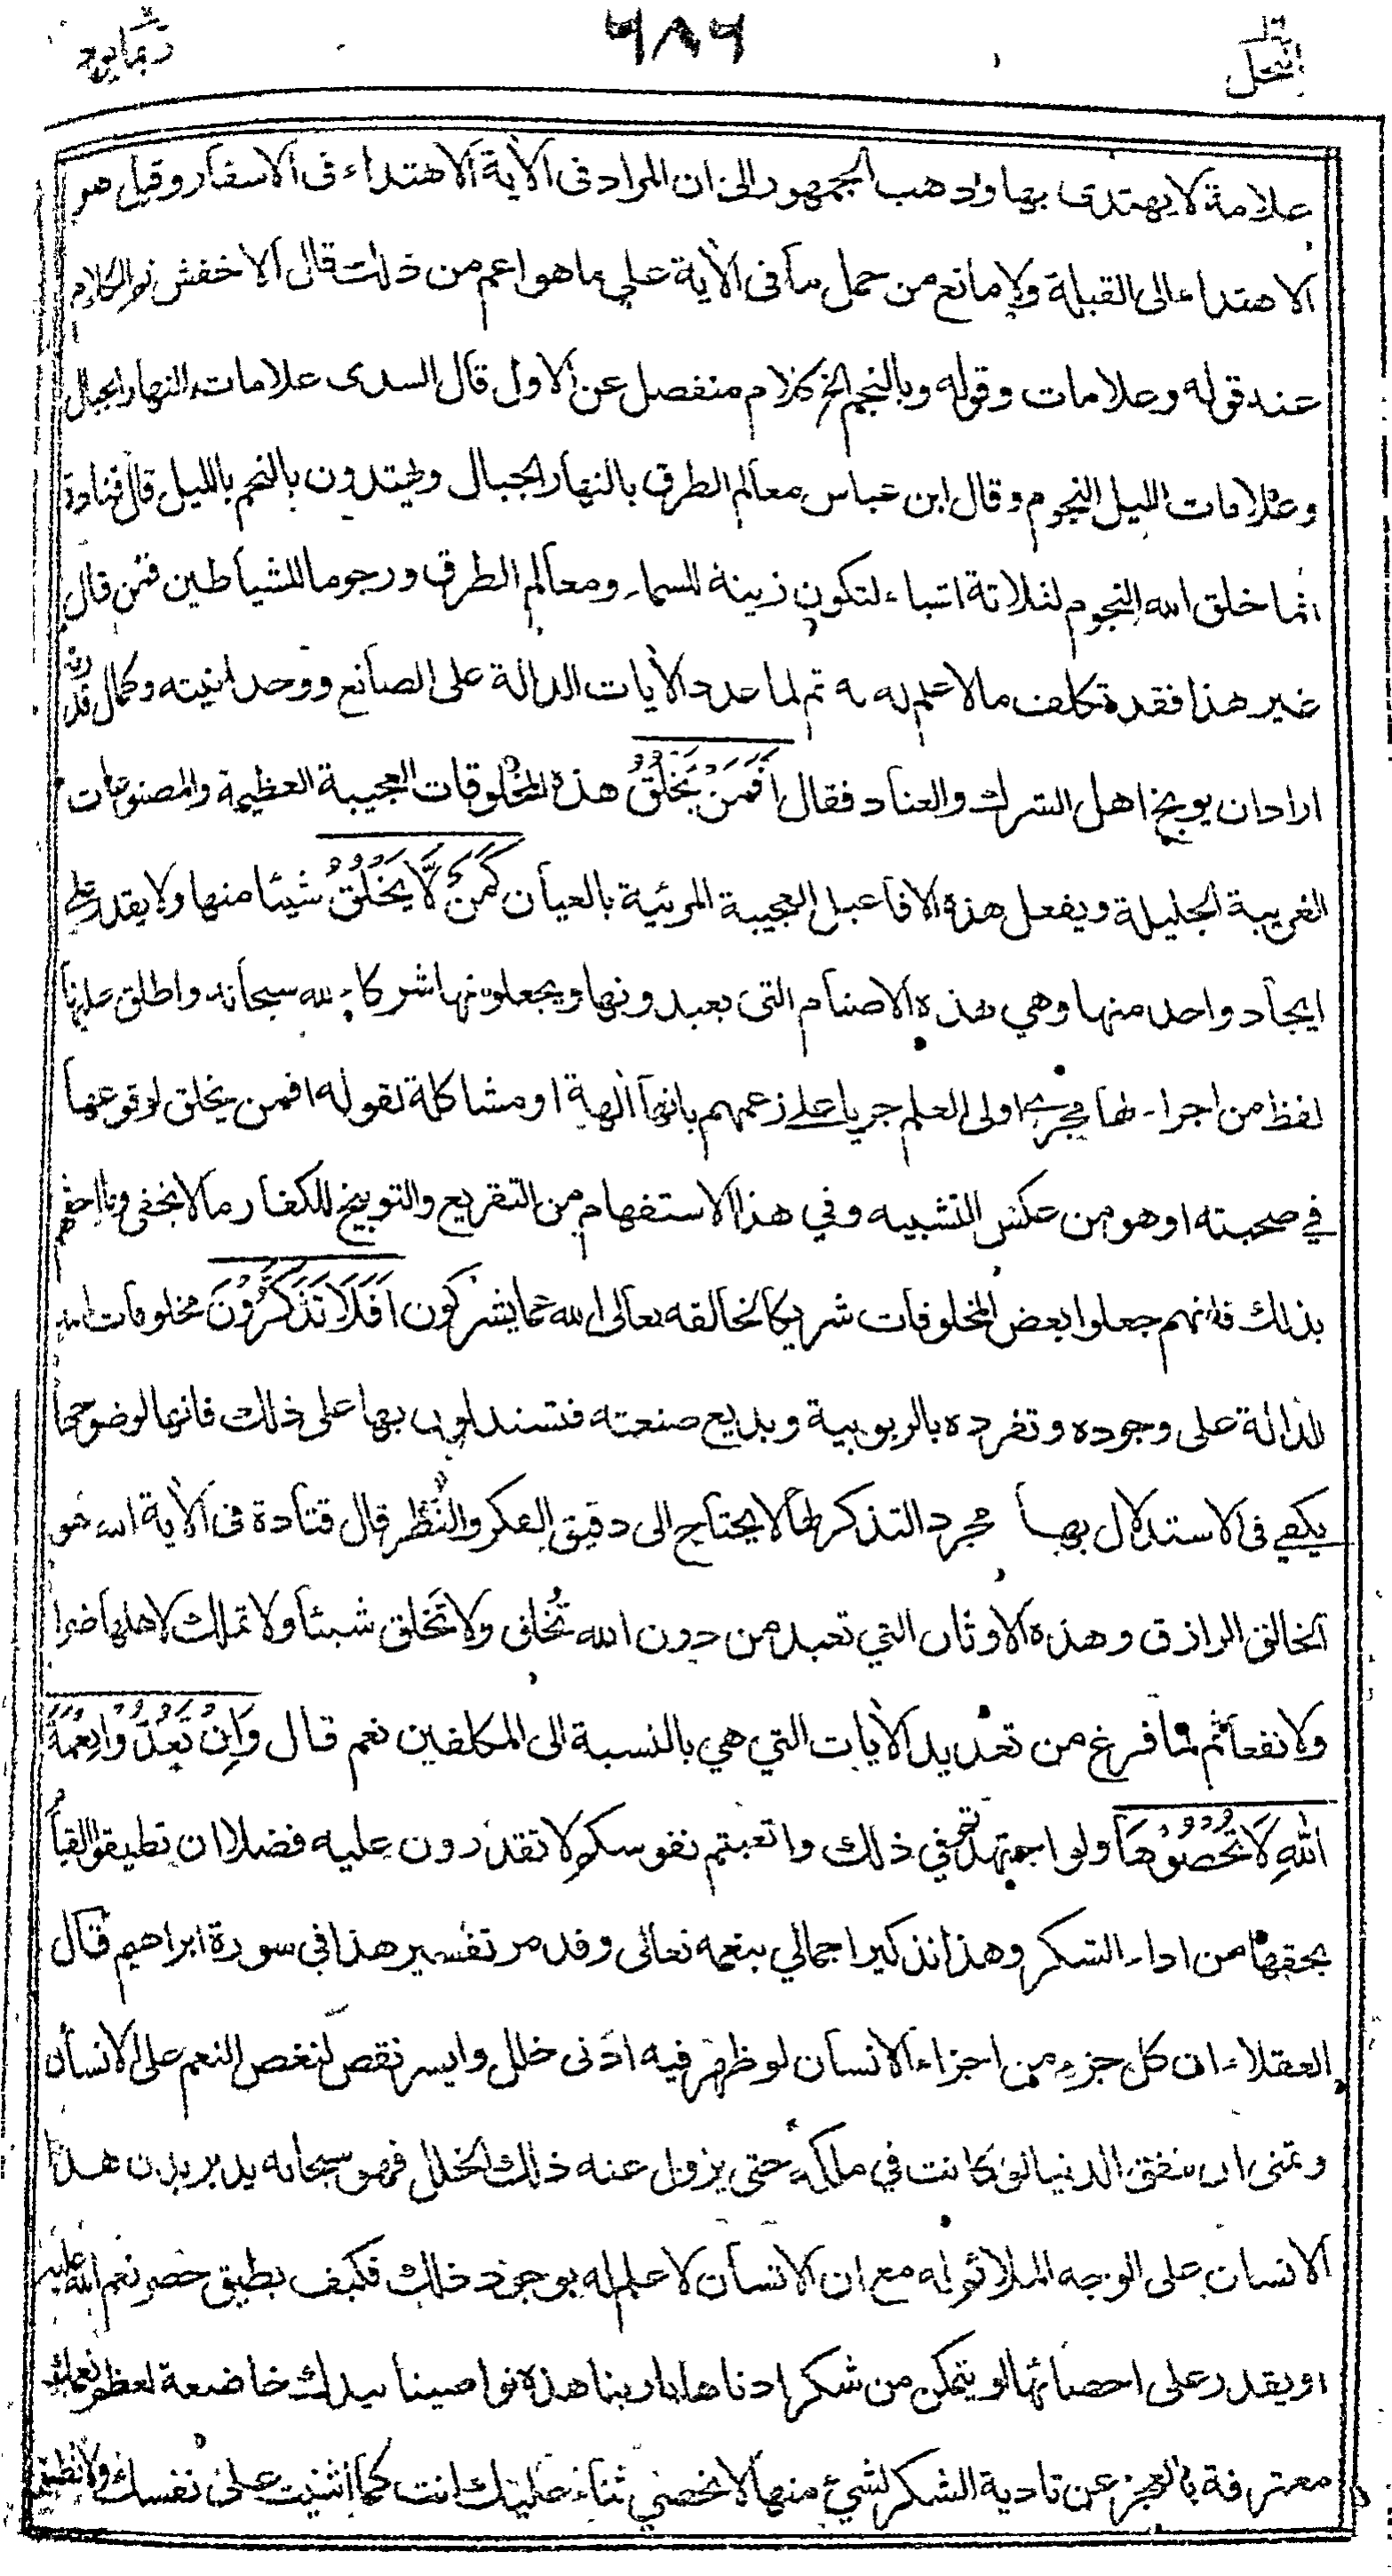 النحل
٦٨٦
ربما ١٤
علامة لا يهتدى بها وذهب الجمهور الى ان المراد فى الآية الاهتداء فى الاسفار وقيل هو
الاهتداء الى القبلة ولا مانع من حمل ما فى الآية على ما هو اعم من ذلك قال الاخفش تم الكلام
عند قوله وعلامات وقوله وبالنجم الخ كلام منفصل عن الاول قال السدى علامات النهار الجبال
وعلامات الليل النجوم وقال ابن عباس معالم الطرق بالنهار الجبال ويهتدون بالنجم بالليل قال قتادة
انما خلق الله النجوم لثلاثة اشياء لتكون زينة للسماء ومعالم الطرق ورجوما للشياطين فمن قال
غير هذا فقد تكلف ما لا علم له به ثم لما عدد الآيات الدالة على الصانع ووحدانيته وكمال قدرته
اراد ان يوبخ اهل الشرك والعناد فقال اَفَمَنْ يَخْلُقُ هذه المخلوقات العجيبة العظيمة والمصنوعات
الغريبة الجليلة ويفعل هذه الافاعيل العجيبة المرئية بالعيان كَمَنْ لَّا يَخْلُقُ شيئا منها ولا يقدر على
ايجاد واحد منها وهي هذه الاصنام التى يعبدونها ويجعلونها شركاء لله سبحانه واطلق عليها
لفظ من اجراء لها مجرى اولى العلم جريا على زعمهم بانها آلهة او مشاكلة لقوله افمن يخلق لوقوعها
في صحبته او هو من عكس التشبيه وفي هذا الاستفهام من التقريع والتوبيخ للكفار ما لا يخفى وما احقهم
بذلك فانهم جعلوا بعض المخلوقات شريكا لخالقه تعالى الله عما يشركون اَفَلَا تَذَكَّرُوْنَ مخلوقات الله
الدالة على وجوده وتفرده بالربوبية وبديع صنعته فتستدلون بها على ذلك فانها لوضوحها
يكفي فى الاستدلال بها مجرد التذكر لها لا يحتاج الى دقيق الفكر والنظر قال قتادة فى الآية الله هو
الخالق الرازق وهذه الاوثان التي تعبد من دون الله تُخلق ولا تَخلق شيئا ولا تملك لاهلها ضرا
ولا نفعا ثم لما فرغ من تعديد الآيات التي هي بالنسبة الى المكلفين نعم قال وَاِنْ تَعُدُّوْا نِعْمَةَ
اللّٰهِ لَا تُحْصُوْهَا ولو اجتهدتم في ذلك واتعبتم نفوسكم لا تقدرون عليه فضلا ان تطيقوا القيام
بحقها من اداء الشكر وهذا تذكير اجمالي بنعمه تعالى وقد مر تفسير هذا في سورة ابراهيم قال
العقلاء ان كل جزء من اجزاء الانسان لو ظهر فيه ادنى خلل وايسر نقص لنغص النعم على الانسان
وتمنى ان ينفق الدنيا لو كانت في ملكه حتى يزول عنه ذلك الخلل فهو سبحانه يدبر بدن هذا
الانسان على الوجه الملائم له مع ان الانسان لا علم له بوجود ذلك فكيف يطيق حصر نعم الله عليه
او يقدر على احصائها او يتمكن من شكر ادناها يا ربنا هذه نواصينا بيدك خاضعة لعظم نعمك
معترفة بالعجز عن تادية الشكر لشيء منها لا نحصي ثناء عليك انت كما اثنيت على نفسك ولا نطيق